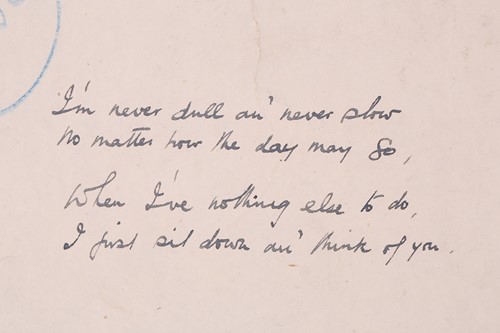 I'm never dull an' never slow
No matter how the day may go,
When I've nothing else to do,
I just sit down an' think of you.